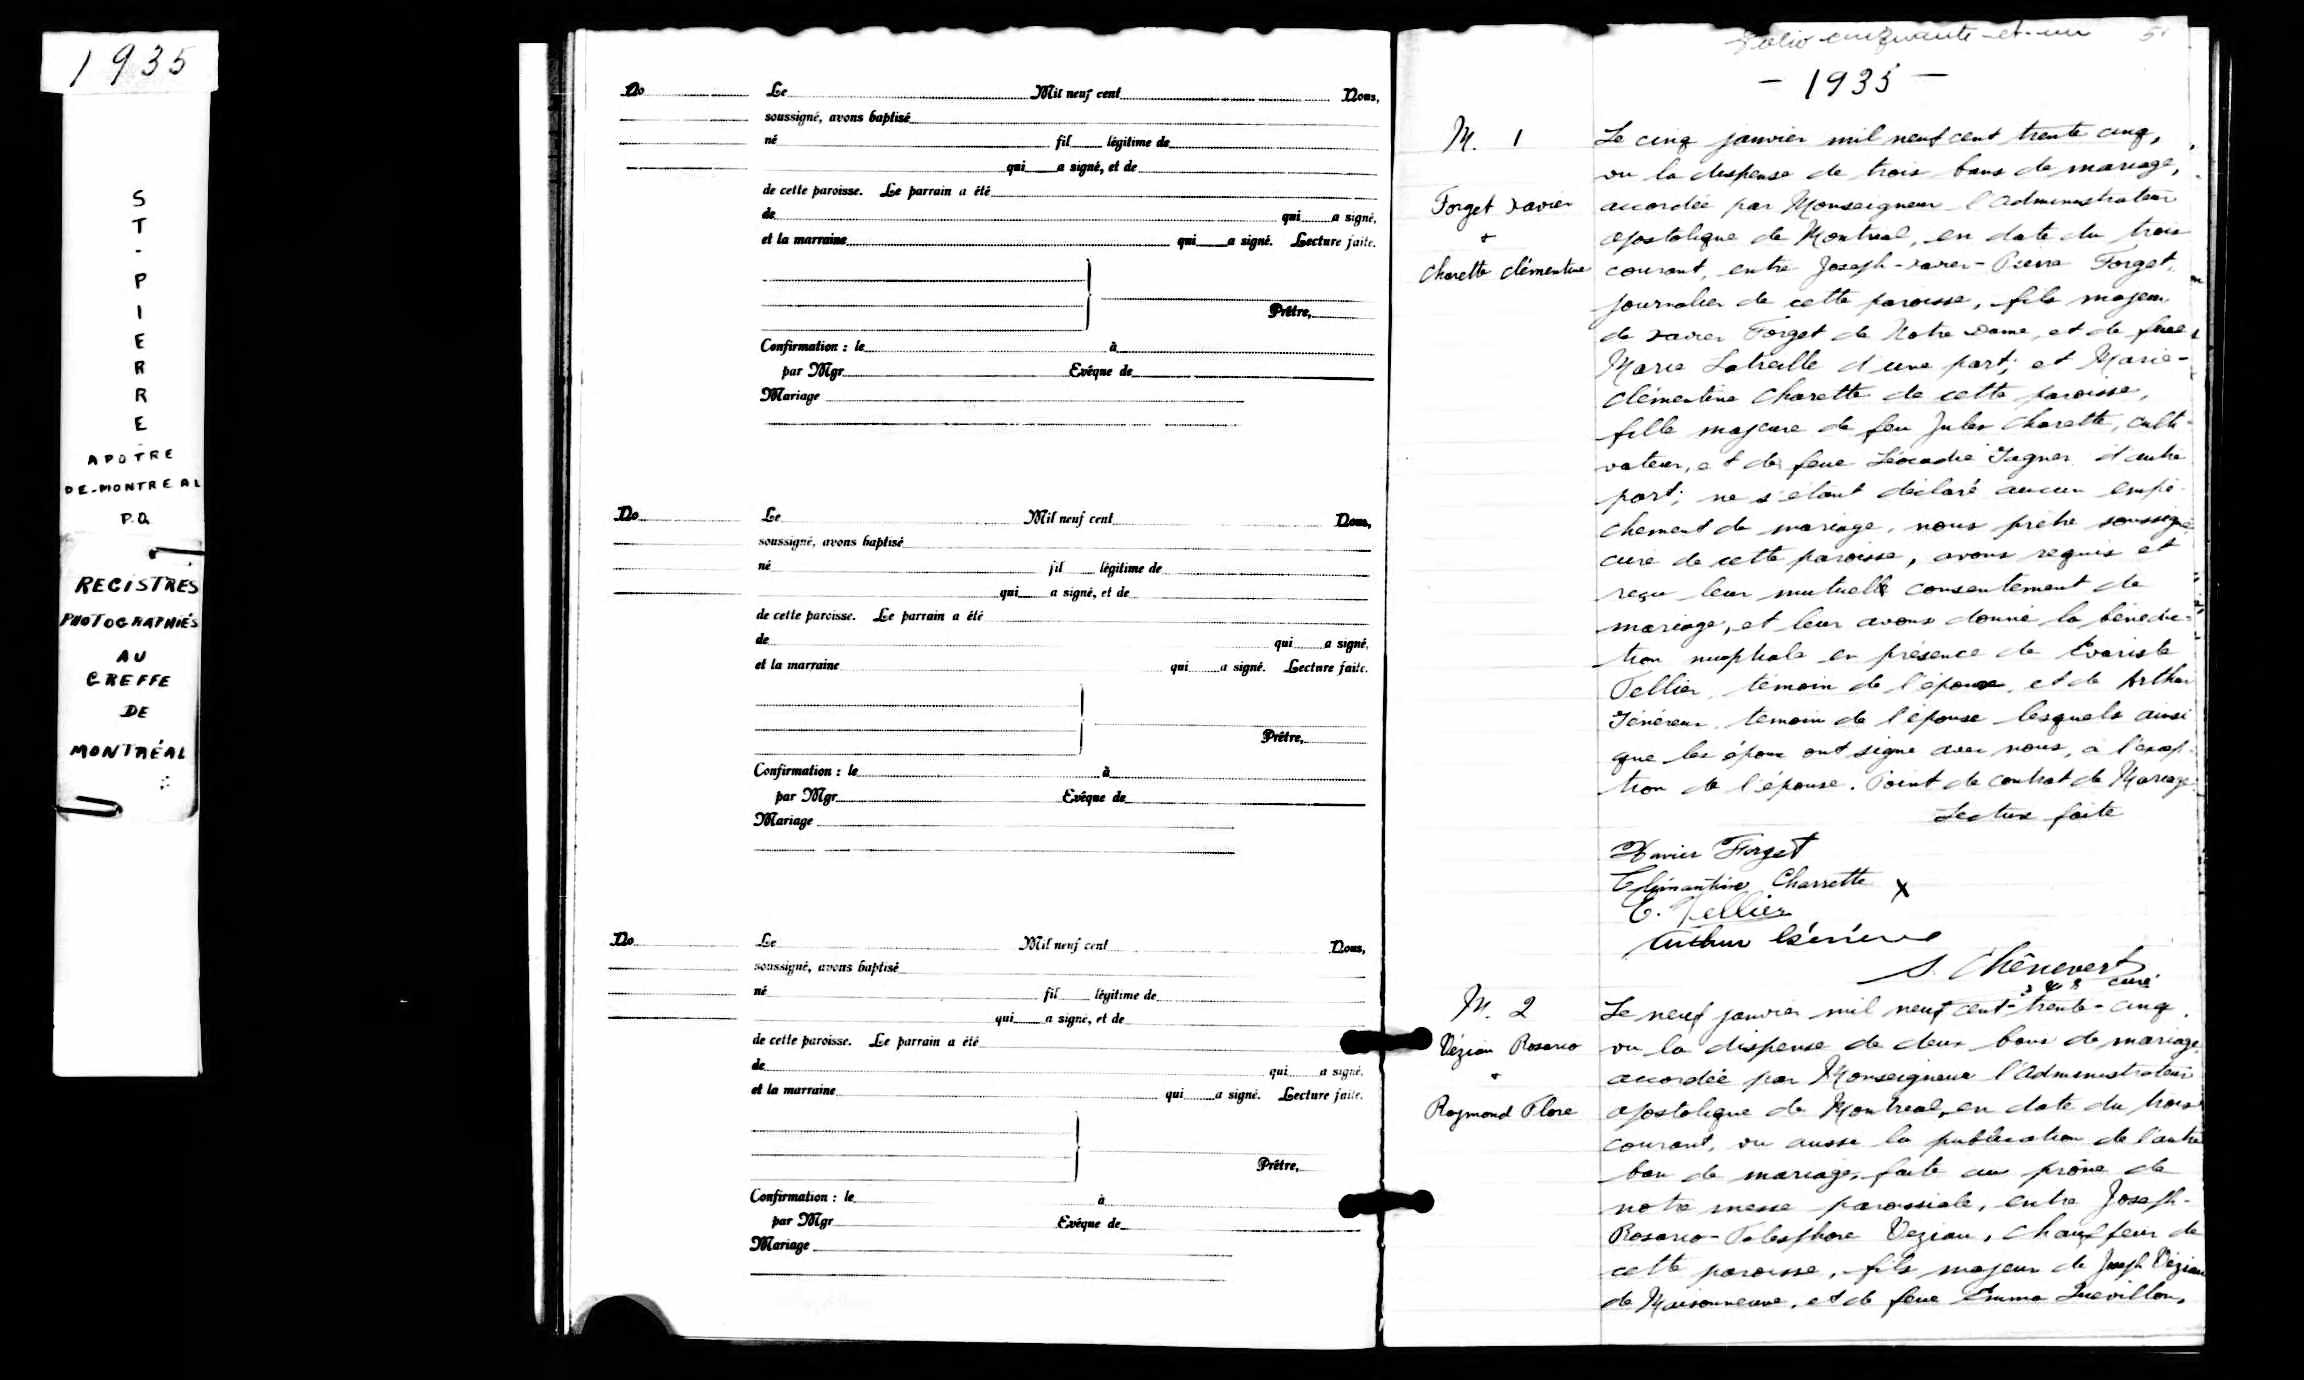 1935
ST-PIERRE
APÔTRE
DE-MONTREAL
P.Q.
REGISTRES
PHOTOGRAPHIÉS
AU
GREFFE
DE
MONTRÉAL
No Le Mil neuf cent Nous,
soussigné, avons baptisé
né fil légitime de
qui a signé, et de
de cette paroisse. Le parrain a été
de qui a signé,
et la marraine qui a signé. Lecture faite.
Prêtre,
Confirmation : le à
par Mgr Evêque de
Mariage
No Le Mil neuf cent Nous,
soussigné, avons baptisé
né fil légitime de
qui a signé, et de
de cette paroisse. Le parrain a été
de qui a signé,
et la marraine qui a signé. Lecture faite.
Prêtre,
Confirmation : le à
par Mgr Evêque de
Mariage
No Le Mil neuf cent Nous,
soussigné, avons baptisé
né fil légitime de
qui a signé, et de
de cette paroisse. Le parrain a été
de qui a signé,
et la marraine qui a signé. Lecture faite.
Prêtre,
Confirmation : le à
par Mgr Evêque de
Mariage
Folio cinquante-et-un
- 1935 -
M. 1
Forget Xavier
+
Charette Clémentine
Le cinq janvier mil neuf cent trente cinq,
vu la dispense de trois bans de mariage,
accordée par Monseigneur l'Administrateur
apostolique de Montreal, en date du trois
courant, entre Joseph-Xavier-Pierre Forget,
journalier de cette paroisse, fils majeur
de Xavier Forget de Notre Dame, et de feue
Marie Latreille d'une part; et Marie-
Clémentine Charette de cette paroisse,
fille majeure de feu Jules Charette, culti-
vateur, et de feue Léocadie Gagner d'autre
part; ne s'étant déclaré aucun empê-
chement de mariage, nous prêtre soussigné
curé de cette paroisse, avons requis et
reçu leur mutuel consentement de
mariage, et leur avons donné la bénédic-
tion nuptiale en présence de Evariste
Tellier, témoin de l'époux, et de Arthur
Généreux témoin de l'épouse lesquels ainsi
que les époux ont signé avec nous, à l'excep-
tion de l'épouse. Point de contrat de Mariage.
Lecture faite
Xavier Forget
Clémantine Charrette X
E. Tellier
Arthur Généreux
S. Chênevert
curé
M. 2
Vézian Rosario
+
Raymond Flore
Le neuf janvier mil neuf cent-trente-cinq,
vu la dispense de deux bans de mariage
accordée par Monseigneur l'Administrateur
apostolique de Montreal, en date du trois
courant, vu aussi la publication de l'autre
ban de mariage, faite au prône de
notre messe paroissiale, entre Joseph-
Rosario-Télesphore Vézian, chauffeur de
cette paroisse, fils majeur de Joseph Vézian
de Maisonneuve, et de feue Emma Quévillon,